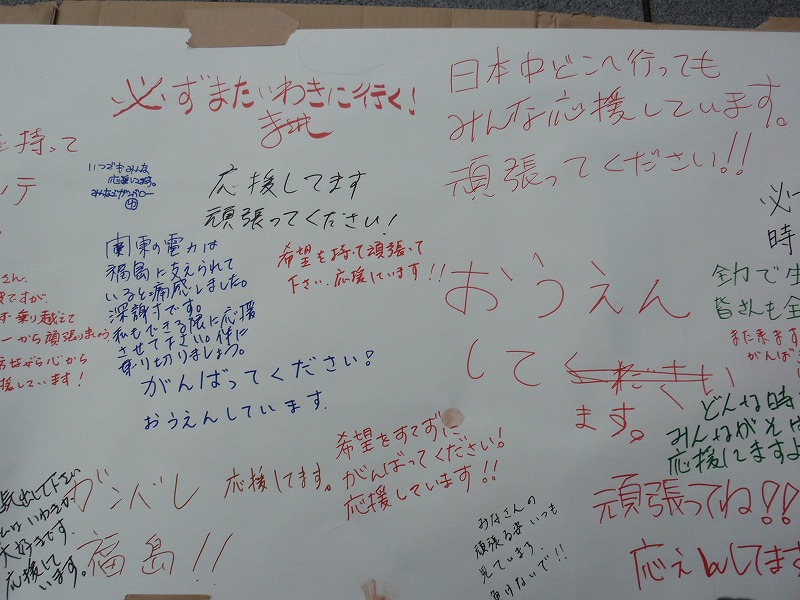 必ずまたいわきに行く!
日本中どこへ行っても
みんな応援しています。
頑張ってください!!
を持って
いつでもみんな
応援してます。
応援してます
頑張ってください!
関東の電力は
福島に支えられて
いると痛感しました。
深謝です。
私もできる限に応援
させて下さい。
乗り切りましょう。
希望を持って頑張って
下さい。応援しています!!
必
時
全力で生
皆さんも全
また来ます
がんば
おうえん
して
ます。
さん。
ですが、
乗り越えて
から頑張りましょう
ながら心から
援しています!
がんばってください!
おうえんしています.
どんな時
みんながそば
応援してますよ
希望をすてずに
がんばってください!
応援しています!!
ガンバレ
福島!!
応援してます。
気出して下さい
いわきが
大好きです.
応援して
います。
みなさんの
頑張る姿いつも
見ています.
負けないで!!
頑張ってね!!
応えんしてます